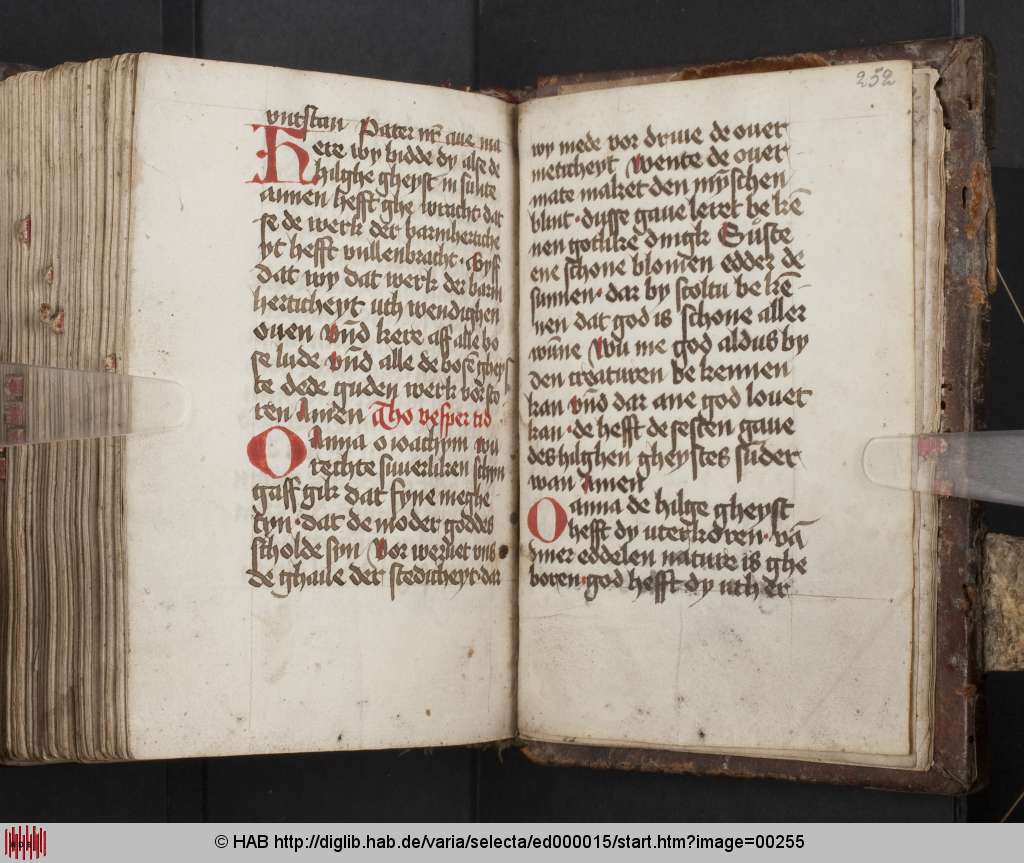 vntstan Pater nr̄ aue ma
Here wy bidde dy alse de
hilghe gheyst in sunte
annen hefft ghe wracht· dat
se de werk der barmhertiche
yt hefft vullenbracht· Gyff
dat wy dat werk der barm
herticheyt vth wendighen
ouen vn̄d kere aff alle bo
se lude vn̄d alle de bosē gheys
te dede guden werk vorsto
ren Amen Tho vesper tid
O Anna o ioachym wu
rechte suuerliken schyn
gaff gik dat fyne meghe
tyn· dat de moder goddes
scholde syn Vor werdet vns
de ghaue der stedicheyt· dar
252
wy mede vor driue de ouer
meticheyt Wente de ouer
mate maket den mȳschen
blint· dusse gaue leret be kē
nen gotlike dingk Suͤste
ene schone blomen edder de
sunnen· dar by scoltu be kē
nen dat god is schone aller
wūne Wu me god aldus by
den creaturen be kennen
kan vn̄d dar ane god louet
kan· de hefft de sesten gaue
des hilghen gheystes sūder
wan Amen
O anna de hilge gheyst
hefft dy vterkoren· vā
diner eddelen nature is ghe
boren· god hefft dy vth er
© HAB http://diglib.hab.de/varia/selecta/ed000015/start.htm?image=00255